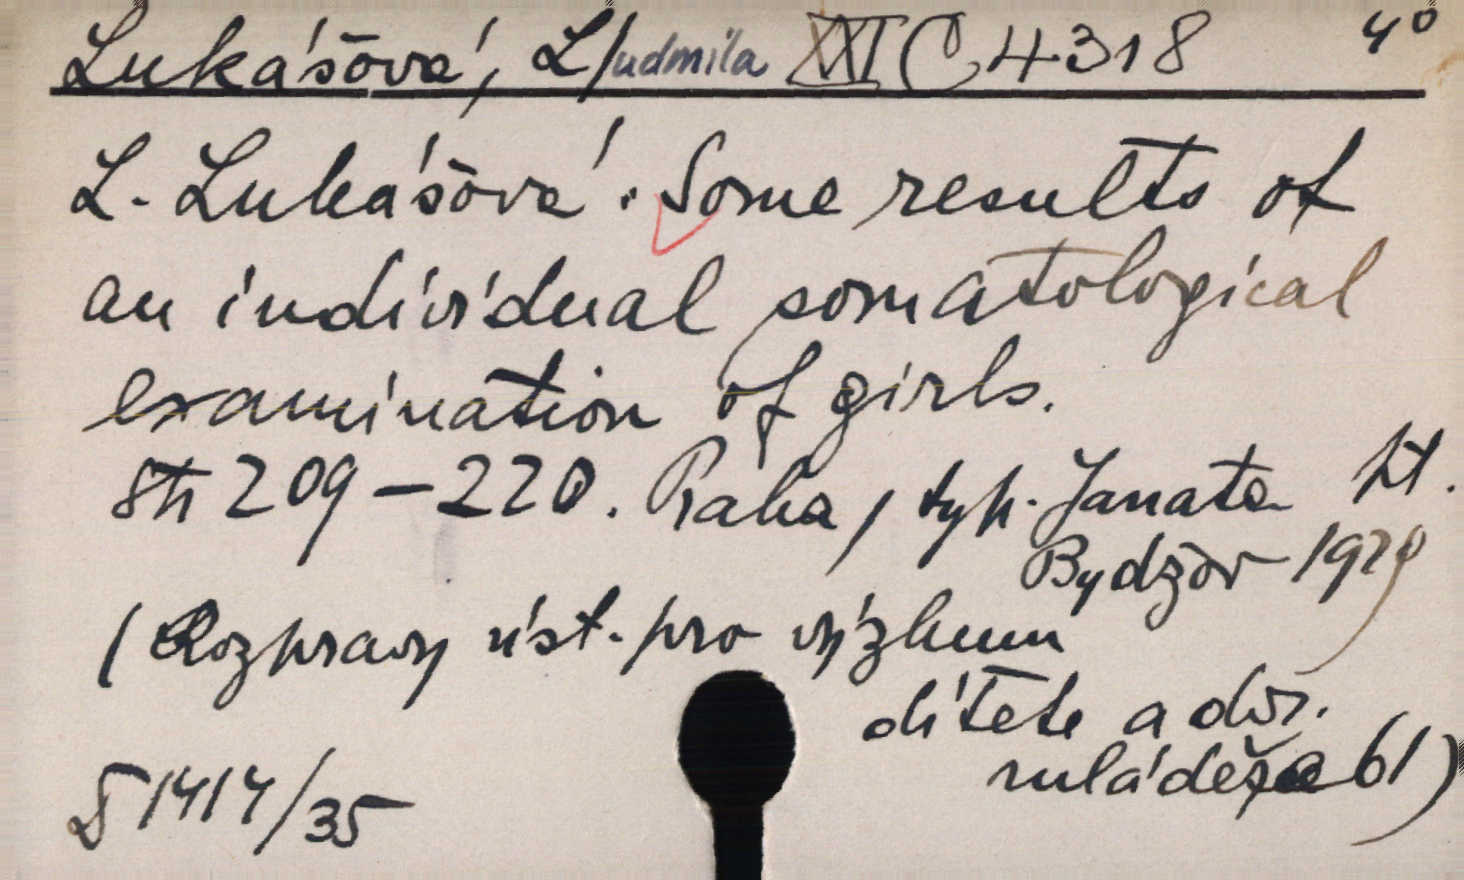 Lukášová, Ludmila XXI C 4318 4°
L. Lukášová: Some results of
an individual somatological
examination of girls.
Str 209-220. Praha, typ. Janata Lt.
Bydžov 1929
(Rozpravy úst. pro výzkum
dítěte a dor.
mládeže 61)
S 1414/35